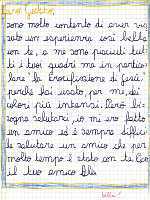 Caro Guttuso,
sono molto contento di aver vis
suto un'esperienza così bella
con te, a me sono piaciuti tut-
ti i tuoi quadri ma in partico-
lare "la Crocifissione di Gesù,"
perché hai usato, per me, dei
colori più intensi. Però bi-
sogna salutarci, io mi ero fatto
un amico ed è sempre diffici
le salutare un amico che per
molto tempo è stato con te. Ciao
il tuo amico